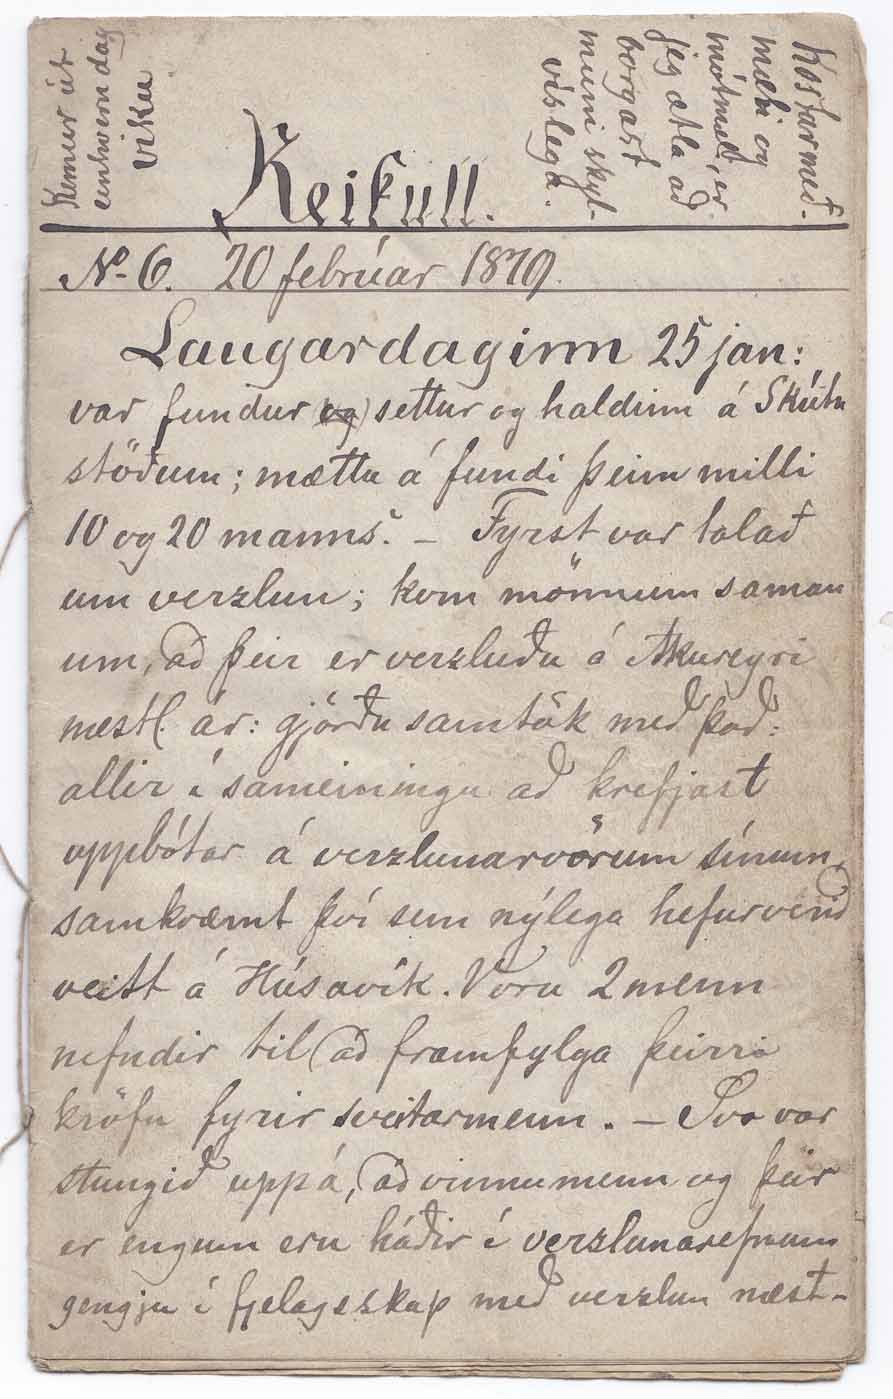 Kemur út
einhvern dag
viku
Reikull.
Kostar með-
mæli og
mótmæli, er
jeg ætla að
borgast
muni skyl-
víslega.
No 6. 20 febrúar 1879.
Laugardaginn 25 jan:
var fundur og settur og haldinn á Skútu
stöðum; mættu á fundi þeim milli
10 og 20 manns. – Fyrst var talað
um verzlun; kom mönnum saman
um, að þeir er verzluðu á Akureyri
næstl. ár: gjörðu samtök með það:
allir í sameiningu að krefjast
uppbótar á verzlunarvörum sínum,
samkvæmt því sem nýlega hefur verið
veitt á Húsavík. Voru 2 menn
nefndir til að framfylga þeirri
kröfu fyrir sveitarmenn. – Svo var
stungið uppá, að vinnumenn og þeir
er engum eru háðir í verzlunarefnum
gengju í fjelagsskap með verzlun næst-